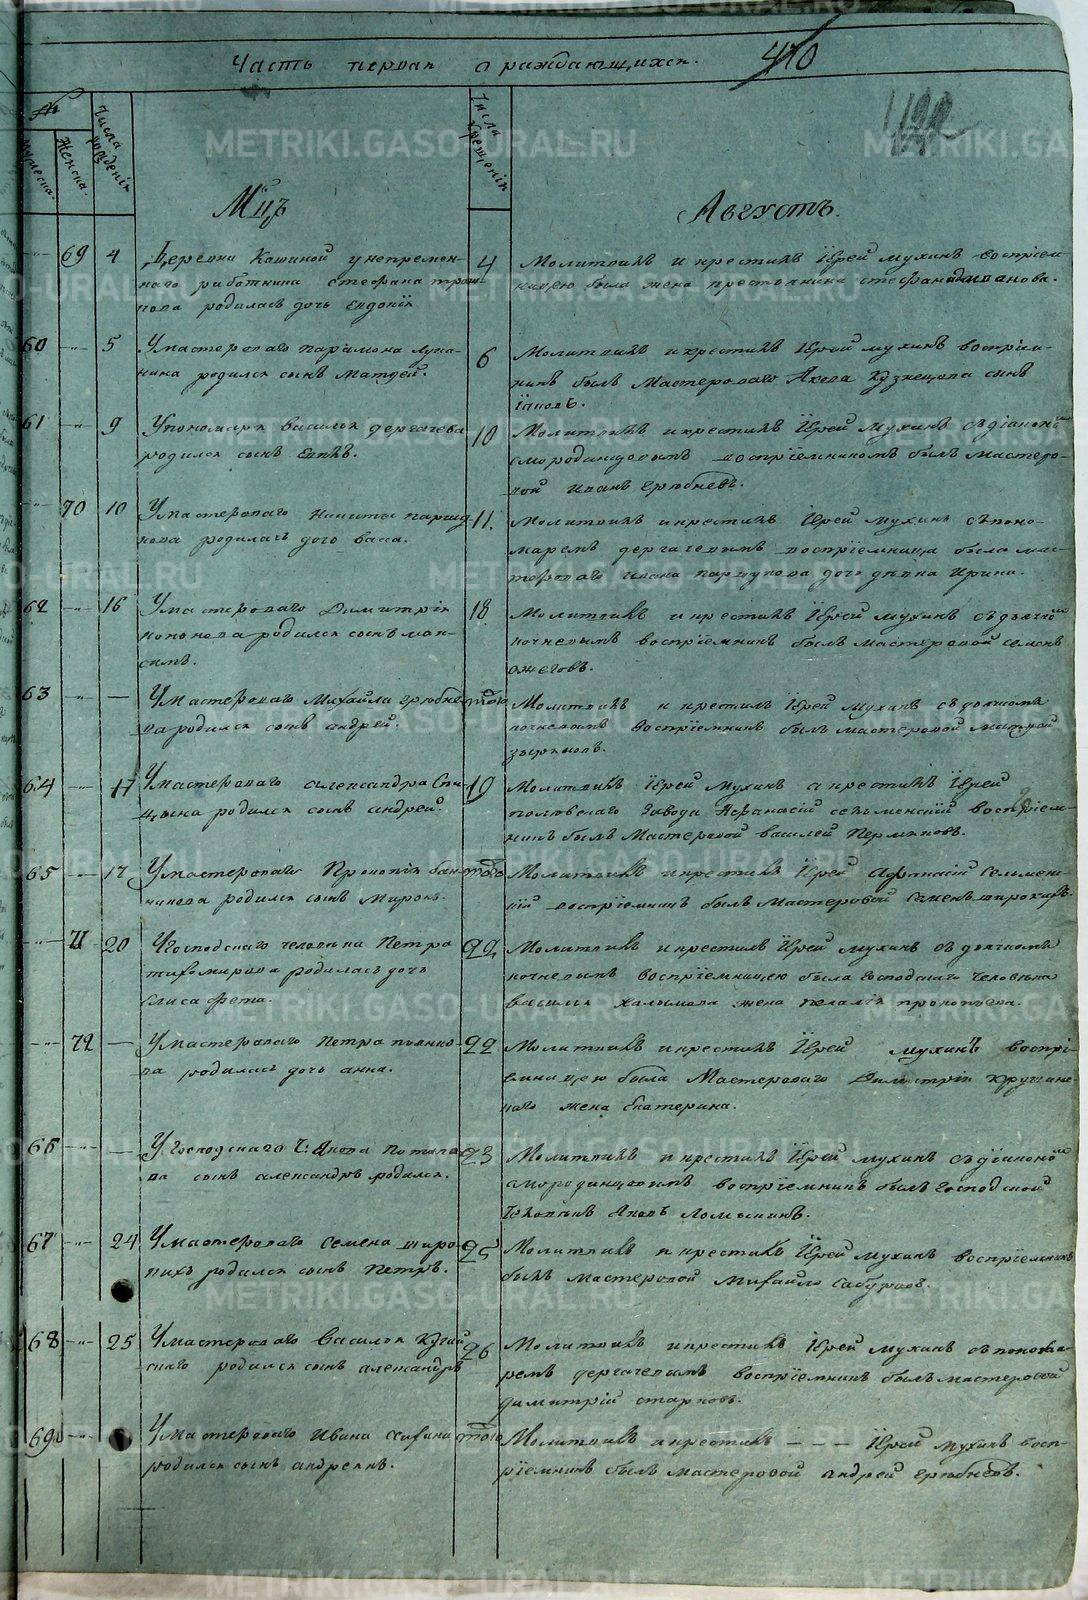 Часть первая о раждающихся.
410
№
Мужеска.
Женска.
Числа рождения
Числа крещенія
Мцъ
Августъ.
69 4 Деревни Кашиной у непремен-
наго работника Стефана
нова родилась дочь Евдокія
4 Молитвилъ и крестилъ Іерей Мухинъ воспріем-
ницею была жена крестьянина Стефана
60 5 У мастероваго Парамона Лука-
нина родился сынъ Матвей.
6 Молитвилъ и крестилъ Іерей Мухинъ воспріем-
никъ былъ Мастероваго Якова Кузнецова сынъ
Іаковъ.
61 9 У пономаря Василья Дергачева
родился сынъ
10 Молитвилъ и крестилъ Іерей Мухинъ съ діакономъ
Смородинцовымъ воспріемникомъ былъ Мастеро-
вой Иванъ Ерюбневъ.
70 10 У мастероваго Никиты Паршу-
кова родилась дочь Васа.
11. Молитвилъ и крестилъ Іерей Мухинъ съ поно-
маремъ Дергачевымъ воспріемница была мас-
тероваго Ивана Паршукова дочь девка Ирина.
62 16 У мастероваго Димитрія
Кононова родился сынъ Мак-
симъ.
18 Молитвилъ и крестилъ Іерей Мухинъ съ дьячкомъ
Кочневымъ воспріемникъ былъ мастеровой Семенъ
Ожеговъ.
63 — У мастероваго Михайла Ерюбне-
ва родился сынъ Андрей.
того Молитвилъ и крестилъ Іерей Мухинъ съ дьячкомъ
Кочневымъ воспріемникъ былъ мастеровой Матвей
Зыряновъ.
64 17 У мастероваго Александра Спи-
цына родился сынъ Андрей.
19 Молитвилъ Іерей Мухинъ а крестилъ Іерей
Полевскаго Завода Афанасій Сельменскій воспріем-
никъ былъ Мастеровой Василей Пермяковъ.
65 17 У мастероваго Прокопія Бан-
никова родился сынъ Миронъ.
того Молитвилъ и крестилъ Іерей Афанасій Сельмен-
скій воспріемникъ былъ Мастеровой Семенъ Широкихъ.
71 20 У Господскаго человека Петра
Тихомирова родилась дочь
Елисафета.
22 Молитвилъ и крестилъ Іерей Мухинъ съ дьячкомъ
Кочневымъ воспріемницею была Господскаго человека
Василья Халымова жена Пелагія Прокопьева.
72 — У мастероваго Петра Полико-
ва родилась дочь Анна.
22 Молитвилъ и крестилъ Іерей Мухинъ воспрі-
емницею была Мастероваго Димитрія
жена Екатерина.
66 — У Господскаго Ч: Якова Потапо-
ва сынъ Александръ родился.
23 Молитвилъ и крестилъ Іерей Мухинъ съ діакономъ
Смородинцовымъ воспріемникъ былъ Господской
человекъ Яковъ
67 24 У мастероваго Семена Широ-
кихъ родился сынъ Петръ.
25 Молитвилъ и крестилъ Іерей Мухинъ воспріемникъ
былъ Мастеровой Михайло Сабуровъ.
68 25 У мастероваго Василья
родился сынъ Александръ
26 Молитвилъ и крестилъ Іерей Мухинъ съ понома-
ремъ Дергачевымъ воспріемникъ былъ мастеровой
Димитрій Старковъ.
69 У мастероваго Ивана
родился сынъ Андреянъ.
того Молитвилъ и крестилъ — — — Іерей Мухинъ восп-
ріемникъ былъ мастеровой Андрей Ерюбневъ.
METRIKI.GASO-URAL.RU